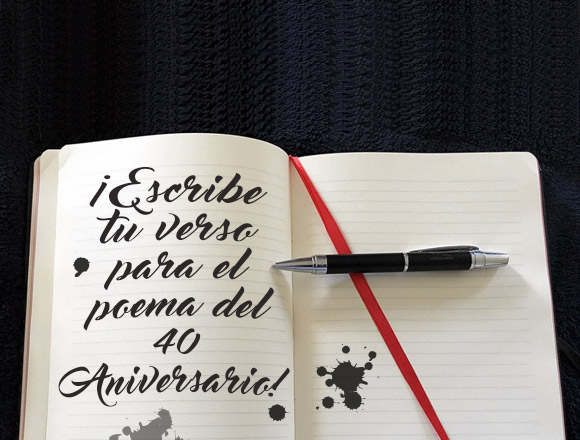 ¡Escribe
tu verso
para el
poema del
40
Aniversario!